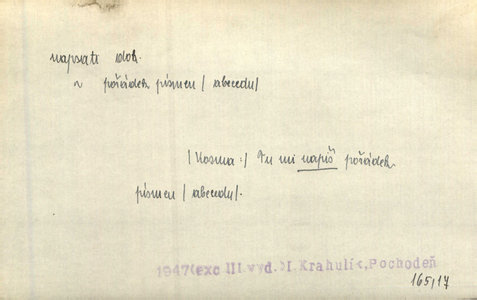 napsati dok.
~ pořádek písmen / abecedu/
/Kosma:/ Tu mi napiš pořádek
písmen / abecedu/.
1947(exc III.vyd.) M. Krahulík, Pochodeň
165,17